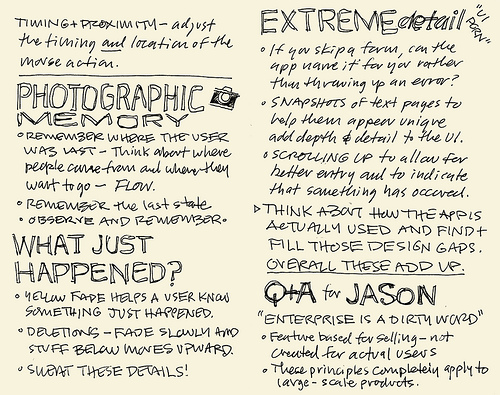 TIMING + PROXIMITY - adjust
the timing and location of the
mouse action.
PHOTOGRAPHIC
MEMORY
• REMEMBER WHERE THE USER
WAS LAST - Think about where
people came from and where they
want to go - FLOW.
• REMEMBER the last state
• OBSERVE AND REMEMBER •
WHAT JUST
HAPPENED?
• YELLOW FADE HELPS A USER KNOW
SOMETHING JUST HAPPENED.
• DELETIONS - FADE SLOWLY AND
STUFF BELOW MOVES UPWARD.
• SWEAT THESE DETAILS!
EXTREME detail "UI PORN"
• If you skip a form, can the
app name it for you rather
than throwing up an error?
• SNAPSHOTS of text pages to
help them appear unique
add depth & detail to the UI.
• SCROLLING UP to allow for
better entry and to indicate
that something has occured.
▷ THINK ABOUT HOW THE APP IS
ACTUALLY USED AND FIND +
FILL THOSE DESIGN GAPS.
OVERALL THESE ADD UP.
Q+A for JASON
"ENTERPRISE IS A DIRTY WORD"
• Feature based for selling - not
created for actual users
• These principles completely apply to
large-scale products.